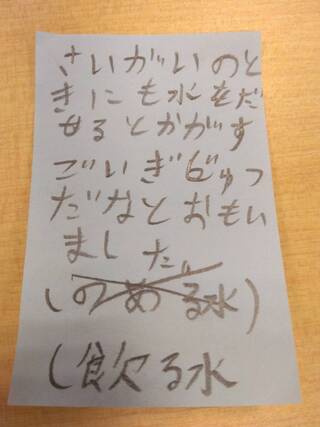 さいがいのと
きにも水をだ
せるとかがす
ごいぎじゅつ
だなとおもい
ました。
(のめる水)
(飲る水